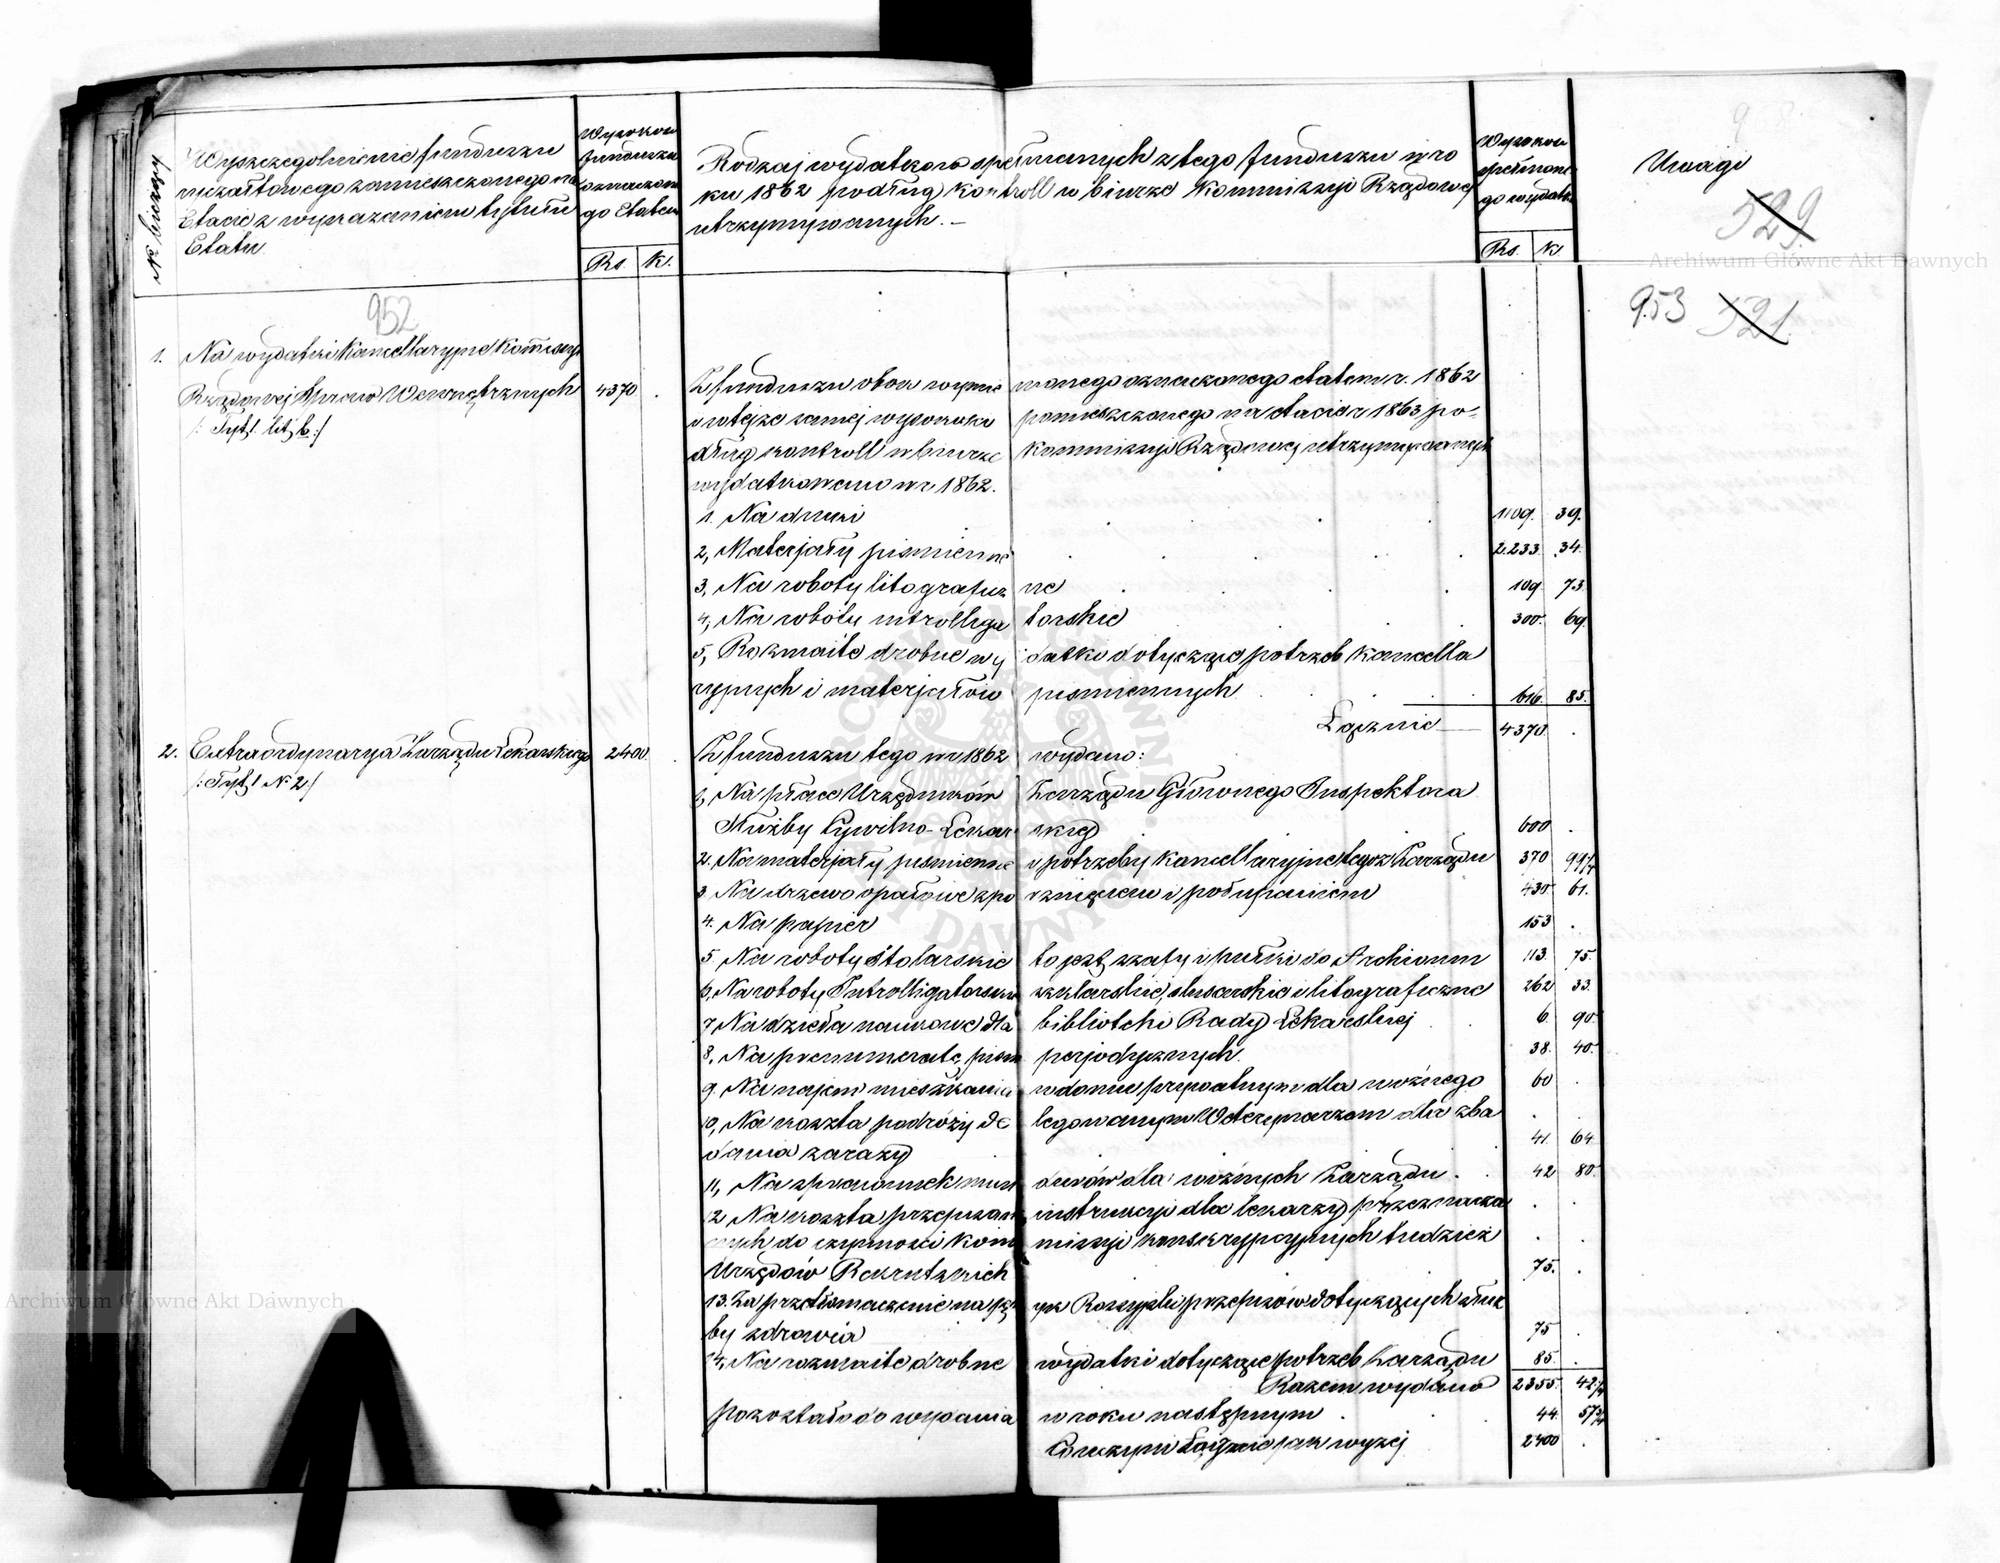 № bieżący
Wyszczególnienie funduszu
ryczałtowego zamieszczonego na
Etacie z wyrażeniem tytułu
Etatu
Wysokość
funduszu
oznaczone
go Etatem
Rs. K.
Rodzaj wydatków spełnionych z tego funduszu w ro
ku 1862 podług kontroll w biurze Kommissyi Rządowej
utrzymywanych. —
Wysokość
spełnione
go wydatku
Rs. K.
Uwagi
9
529.
953 521.
952
1. Na wydatki Kancellaryjne Kommissyi
Rządowej Spraw Wewnętrznych 4370 .
/: Tyt. I lit. b :/
Z funduszu obok wymienionego oznaczonego etatem r. 1862
i w tejże samej wysokości pomieszczonego na etacie r. 1863 po-
dług kontroll w biurze Kommissyi Rządowej utrzymywanych
wydatkowano w r. 1862.
1. Na druki 1109. 39.
2, Materjały piśmienne 2.233. 34.
3, Na roboty litograficzne 109. 73.
4, Na roboty introlligatorskie 300. 69.
5, Rozmaite drobne wydatki dotyczące potrzeb kancella
ryjnych i materjałów piśmiennych 616. 85.
Łącznie 4370 .
2. Extraordynarya Zarządu Lekarskiego 2400. .
/: Tyt. I № 2 :/
Z funduszu tego w r. 1862 wydano:
1, Na płace Urzędników Zarządu Głównego Inspektora
Służby Cywilno-Lekarskiej 600 .
2. Na materjały piśmienne i potrzeby kancellaryjne tegoż Zarządu 370 99 1/4
3 Na drzewo opałowe z porznięciem i połupaniem 430. 61.
4. Na papier 153 .
5 Na roboty Stolarskie to jest szafy i półki do Archiwum 113. 75.
6, Na roboty Introlligatorskie szklarskie, ślusarskie i litograficzne 262 33.
7, Na dzieła naukowe dla biblioteki Rady Lekarskiej 6. 90.
8, Na prenumeratę pism perjodycznych. 38. 40.
9. Na najem mieszkania w domu prywatnym dla woźnego 60 .
10, Na koszta podróży delegowanym Weterynarzom dla zba
dania zarazy 41. 64.
11, Na sprawunek mundurów dla woźnych Zarządu. 42 80.
12 Na koszta przepisania instrukcji dla lekarzy przeznacza
nych do czynności Kommissyi konskrypcyjnych tudzież
Urzędów Rekrutskich 75. .
13. Za przetłomaczenie na język Rossyjski przepisów dotyczących służ
by zdrowia 75 .
14, Na rozmaite drobne wydatki dotyczące potrzeb Zarządu 85. .
Razem wydano 2355. 42 1/4
pozostało do wydania w roku następnym 44. 57 3/4
Co uczyni łącznie jak wyżej 2400 .
Archiwum Główne Akt Dawnych
Archiwum Główne Akt Dawnych